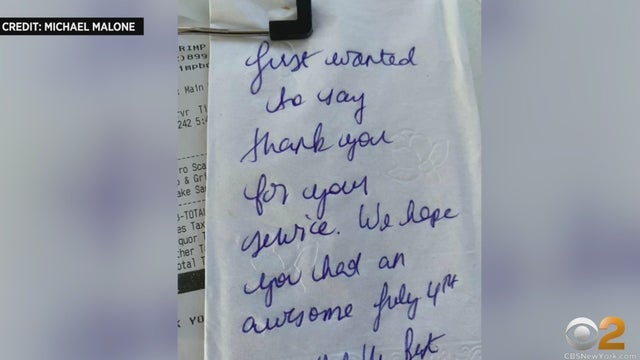 CREDIT: MICHAEL MALONE
RIMP
)899
Main
242 5:4
ro Sca
& Gr
ake Sa
-TOTAL
es Tax
iquor T
ther Ta
otal T
K YO
Just wanted
to say
thank you
for your
service. We hope
you had an
awesome July 4th
Best
2
CBSNewYork.com